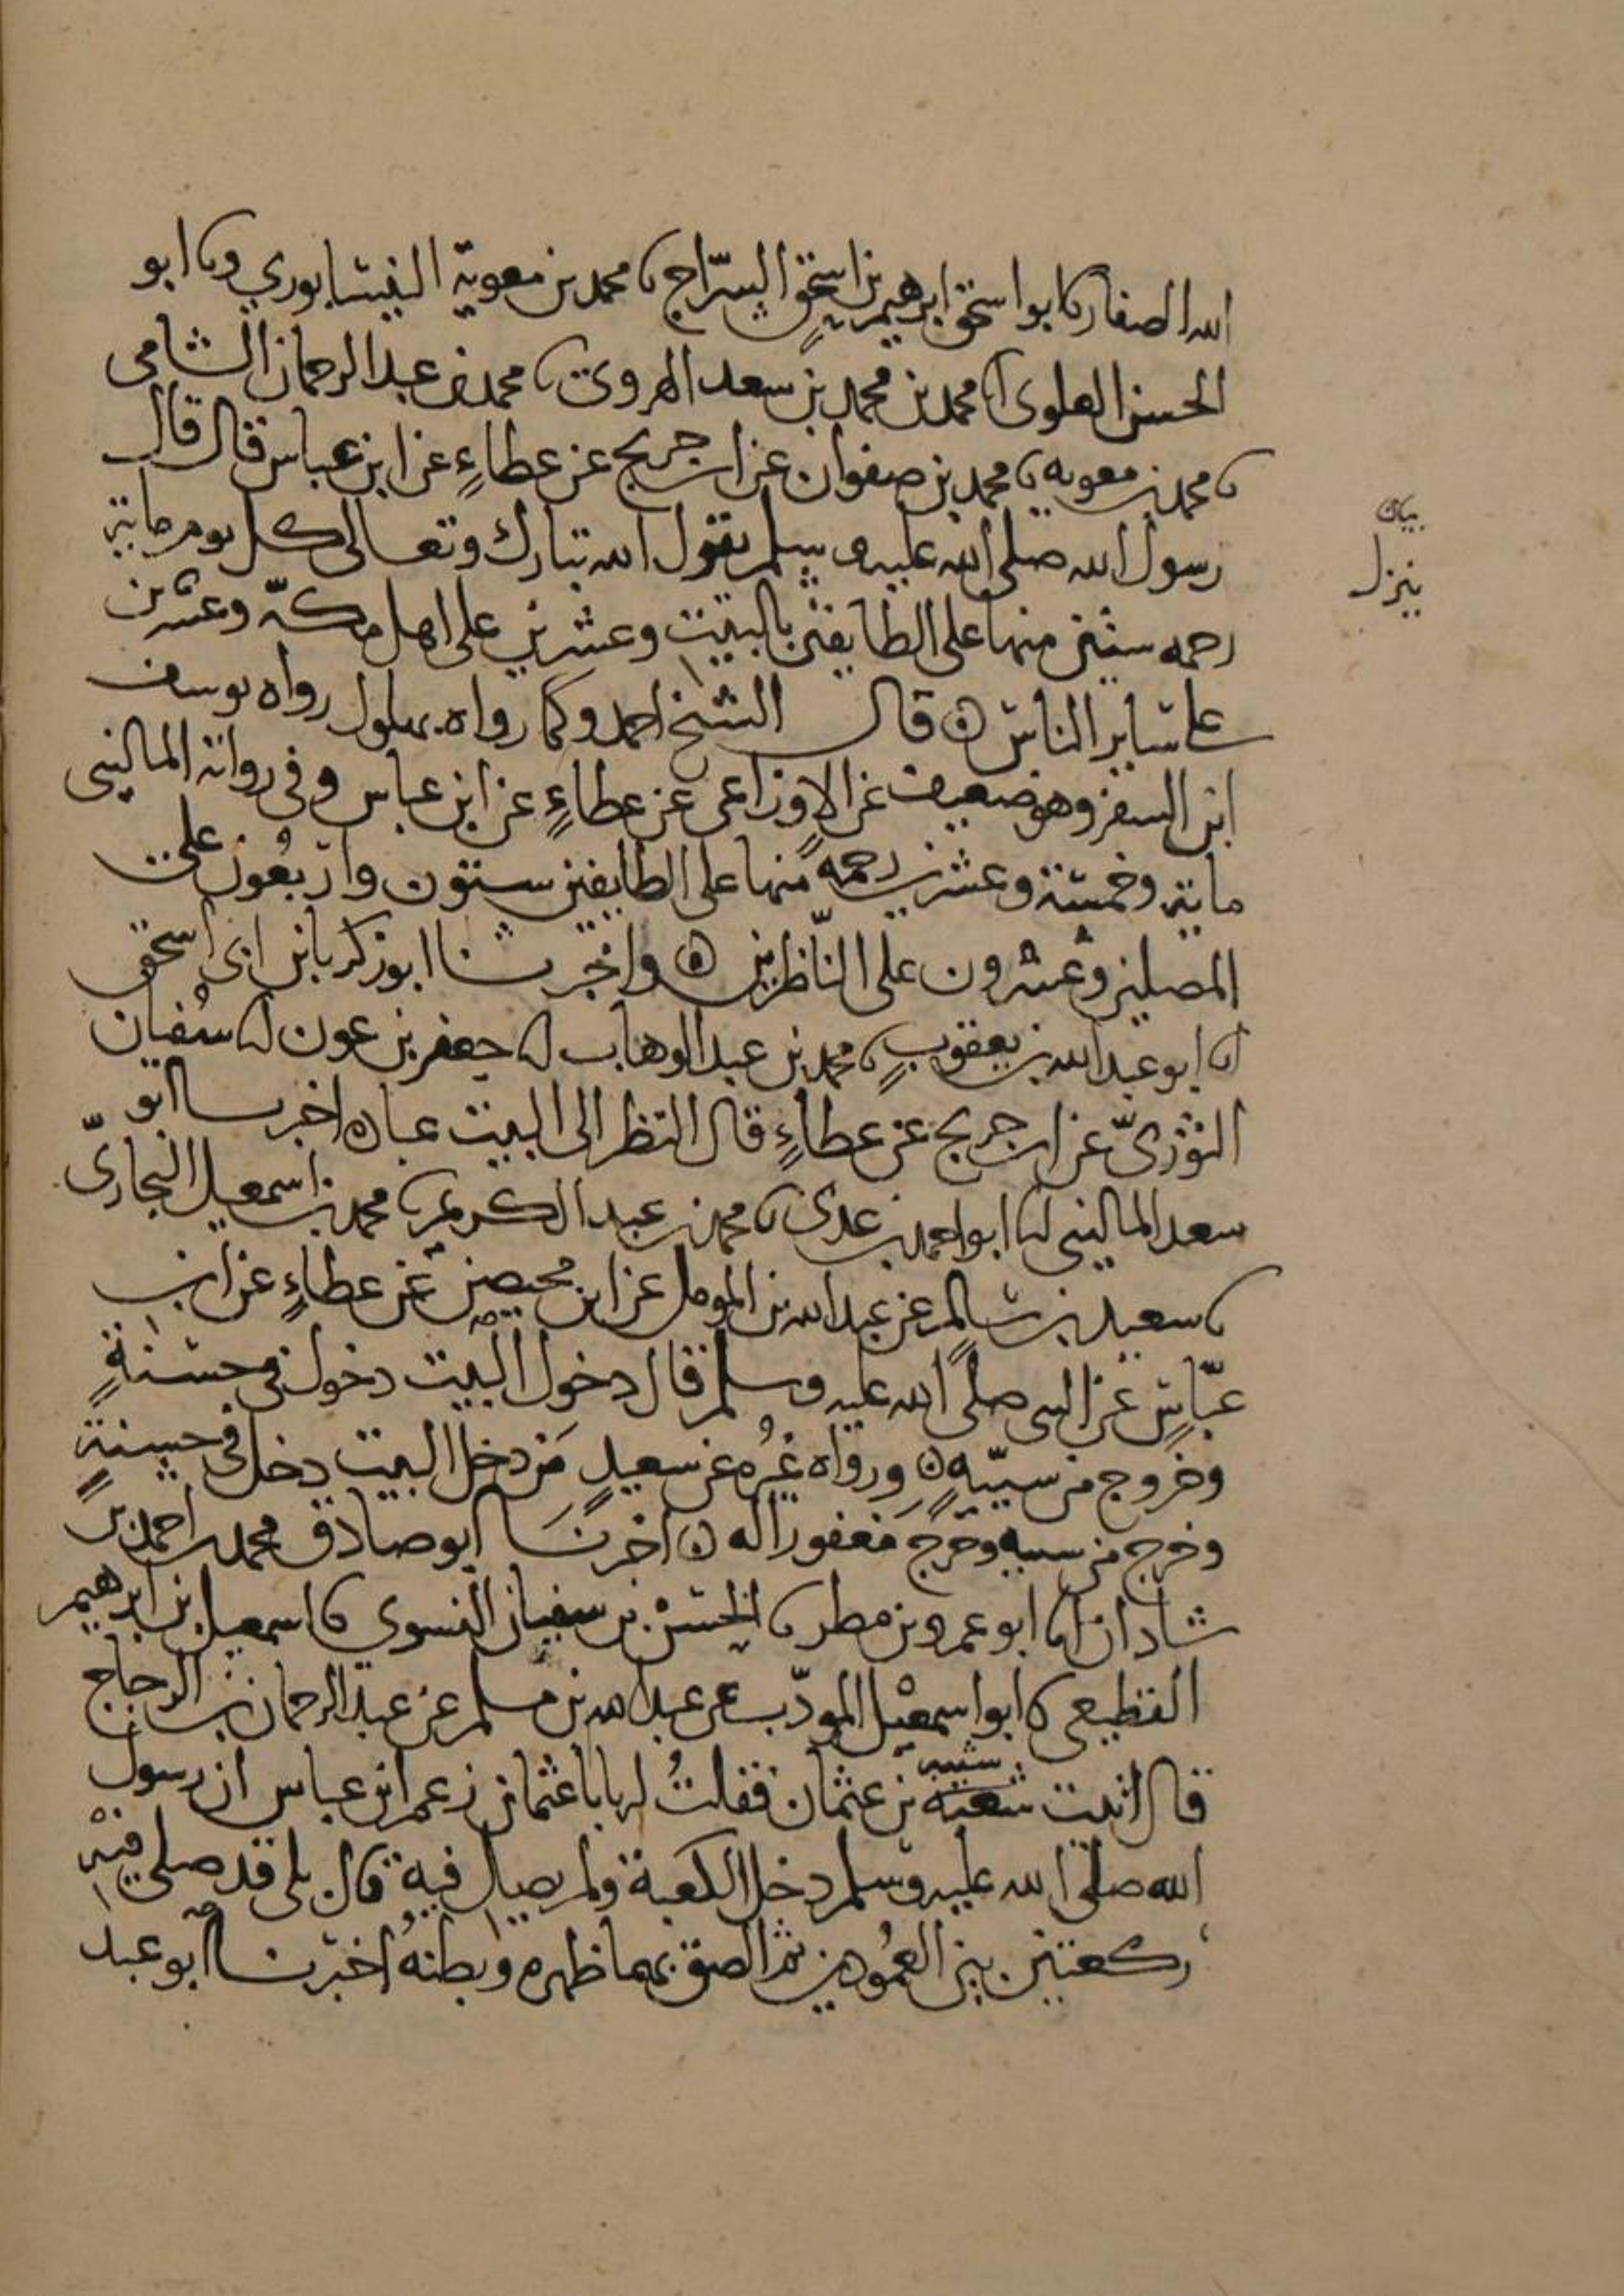 الله الصفار نا ابو اسحق ابرهيم بن اسحق السرّاج نا محمد بن معوية النيسابوري ونا ابو
الحسن العلوي انا محمد بن محمد بن سعد الهروي نا محمد بن عبد الرحمان الشامي
نا محمد بن معويه نا محمد بن صفوان عن ابن جريج عن عطاءٍ عن ابن عباس قال قال
رسول الله صلى الله عليه وسلم يقول الله تبارك وتعالى كل يوم ماية
رحمه ستين منها على الطايفين بالبيت وعشرين على اهل مكّة وعشرين
على ساير الناس ۞ قال الشيخ احمد وكما رواه بهلول رواه يوسف
ابن السفر وهو ضعيف عن الاوزاعى عن عطاءٍ عن ابن عباس وفى رواية المالينى
ماية وخمسة وعشرين رحمه منها على الطايفين ستون واربعُون على
المصلين وعشرون على النّاظرين ۞ واخبرنا ابو زكريا بن ابى اسحق
انا ابو عبد الله بن يعقوب نا محمد بن عبد الوهاب انا جعفر بن عون انا سُفيان
الثوْرىّ عن ابن جريج عن عطاءٍ قال النظر الى البيت عباده اخبرنا ابو
سعد المالينى انا ابو احمد بن عدى نا محمد بن عبد الكريم نا محمد بن اسمعيل البخاريّ
نا سعيد بن سالم عن عبد الله بن المومل عن ابن محيصن عن عطاءٍ عن ابن
عبّاسٍ عن النبى صلى الله عليه وسلم قال دخول البيت دخول فى حسنةٍ
وخروج من سيّيةٍ ۞ ورواه غيُره عن سعيدٍ مَن دخل البيت دخل فى حسنةٍ
وخرج من سييه وخرج مغفورا له ۞ اخبرنَا ابو صادق محمد بن احمد بن
شاذان انا ابو عمرو بن مطر نا الحسَن بن سفيان النسوي نا اسمعيل بن ابرهيم
القطيعي نا ابو اسمعيل المودّب عن عبد الله بن مسلم عن عبد الرحمان بن الزجاج
قال اتيت شعبة بن عثمان فقلتُ له يابا عثمان زعم ابن عباس ان رسول
شيبه
الله صلى الله عليه وسلم دخل الكعبة ولم يصل فيه قال بلى قد صلى فيه
ركعتين بين العمُودين ثم الصق بهما ظهره وبطنهُ اخبرنا ابو عبد
بيان
ينزل